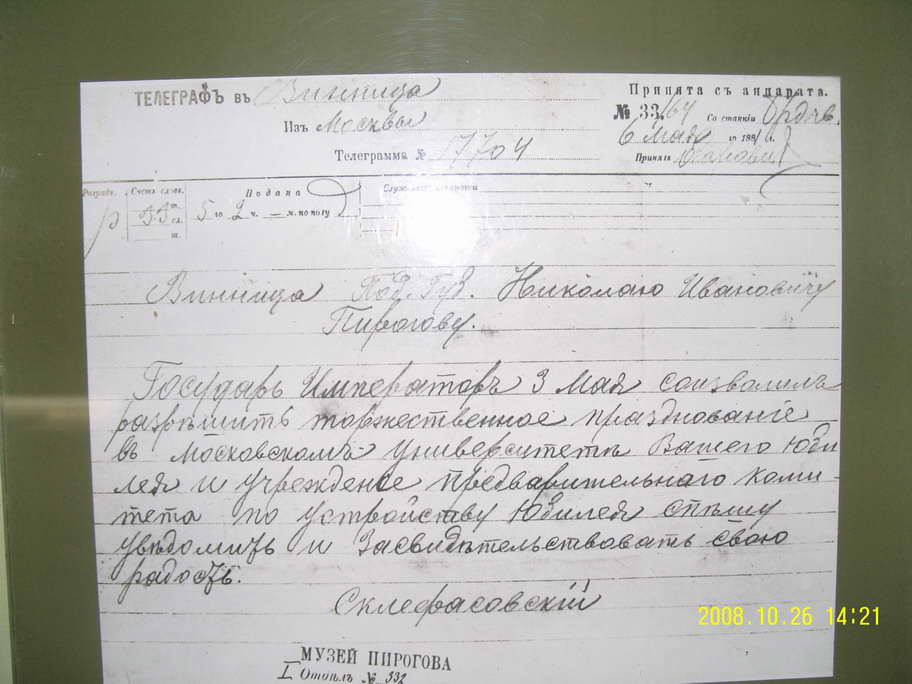 ТЕЛЕГРАФЪ въ Винница
Принята съ аппарата.
№ 33/64 Со станціи
Изъ Москвы
6 Мая 1881 г.
Телеграмма № 17704
Принялъ
Разрядъ. Счетъ словъ. Подана
р 33 сл. 5 го 2 ч. — м. по полу
Винница Под. Губ. Николаю Ивановичу
Пирогову.
Государь Императоръ 3 Мая соизволилъ
разрѣшить торжественное празднованіе
въ Московскомъ Университетѣ Вашего Юби
лея и учрежденіе предварительнаго коми-
тета по устройству Юбилея спѣшу
увѣдомить и Засвидѣтельствовать свою
радость.
Склефасовскій
МУЗЕЙ ПИРОГОВА
I Отдѣлъ № 332
2008.10.26 14:21